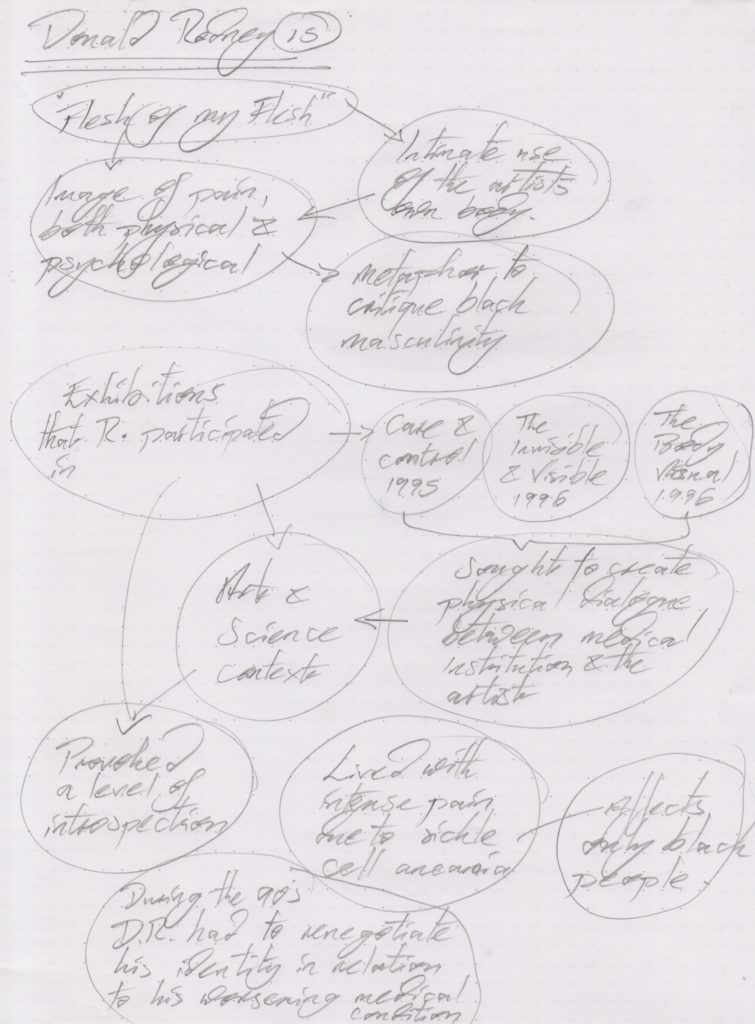 Donald Rodney 15
"Flesh of my Flesh"
Intimate use
of the artists
own body.
Image of pain,
both physical &
psychological
metaphor to
critique black
masculinity
Exhibitions
that R. participated
in
Care &
control
1995
The
Invisible
& Visible
1996
The
Body
Visual
1996
Sought to create
physical dialogue
between medical
institution & the
artist
Art &
Science
context
Provoked
a level of
introspection
Lived with
intense pain
due to sickle
cell aneamia
Affects
only black
people.
During the 90's
D.R. had to renegotiate
his identity in relation
to his worsening medical
condition